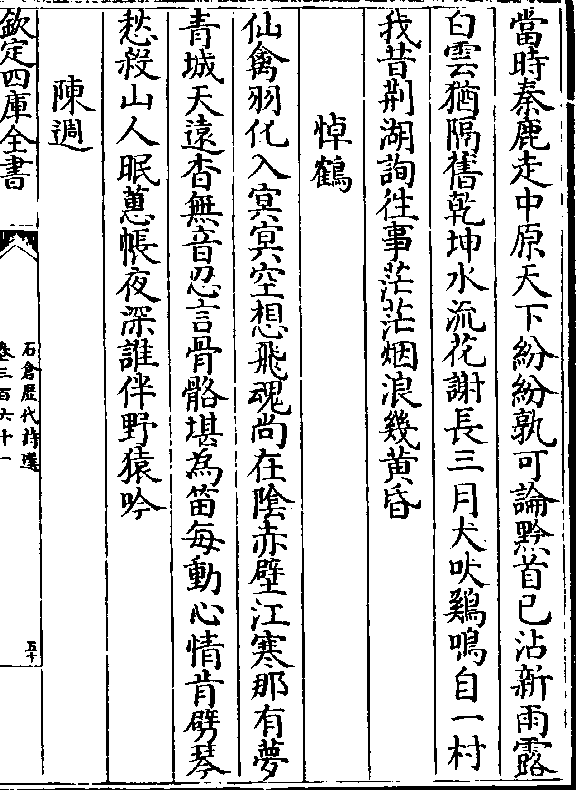 當時秦鹿走中原天下紛紛孰可論黔首已沾新雨露
白雲猶隔舊乾坤水流花謝長三月犬吠鷄鳴自一村
我昔荆湖詢徃事茫茫烟浪幾黄昏
悼鶴
仙禽羽化入㝠㝠空想飛魂尚在隂赤壁江寒那有夢
青城天遠杳無音忍言骨骼堪為笛每動心情肯劈琴
愁殺山人眠蕙帳夜深誰伴野猿吟
陳週
欽定四庫全書
石倉歴代詩選
卷三百六十一
五十